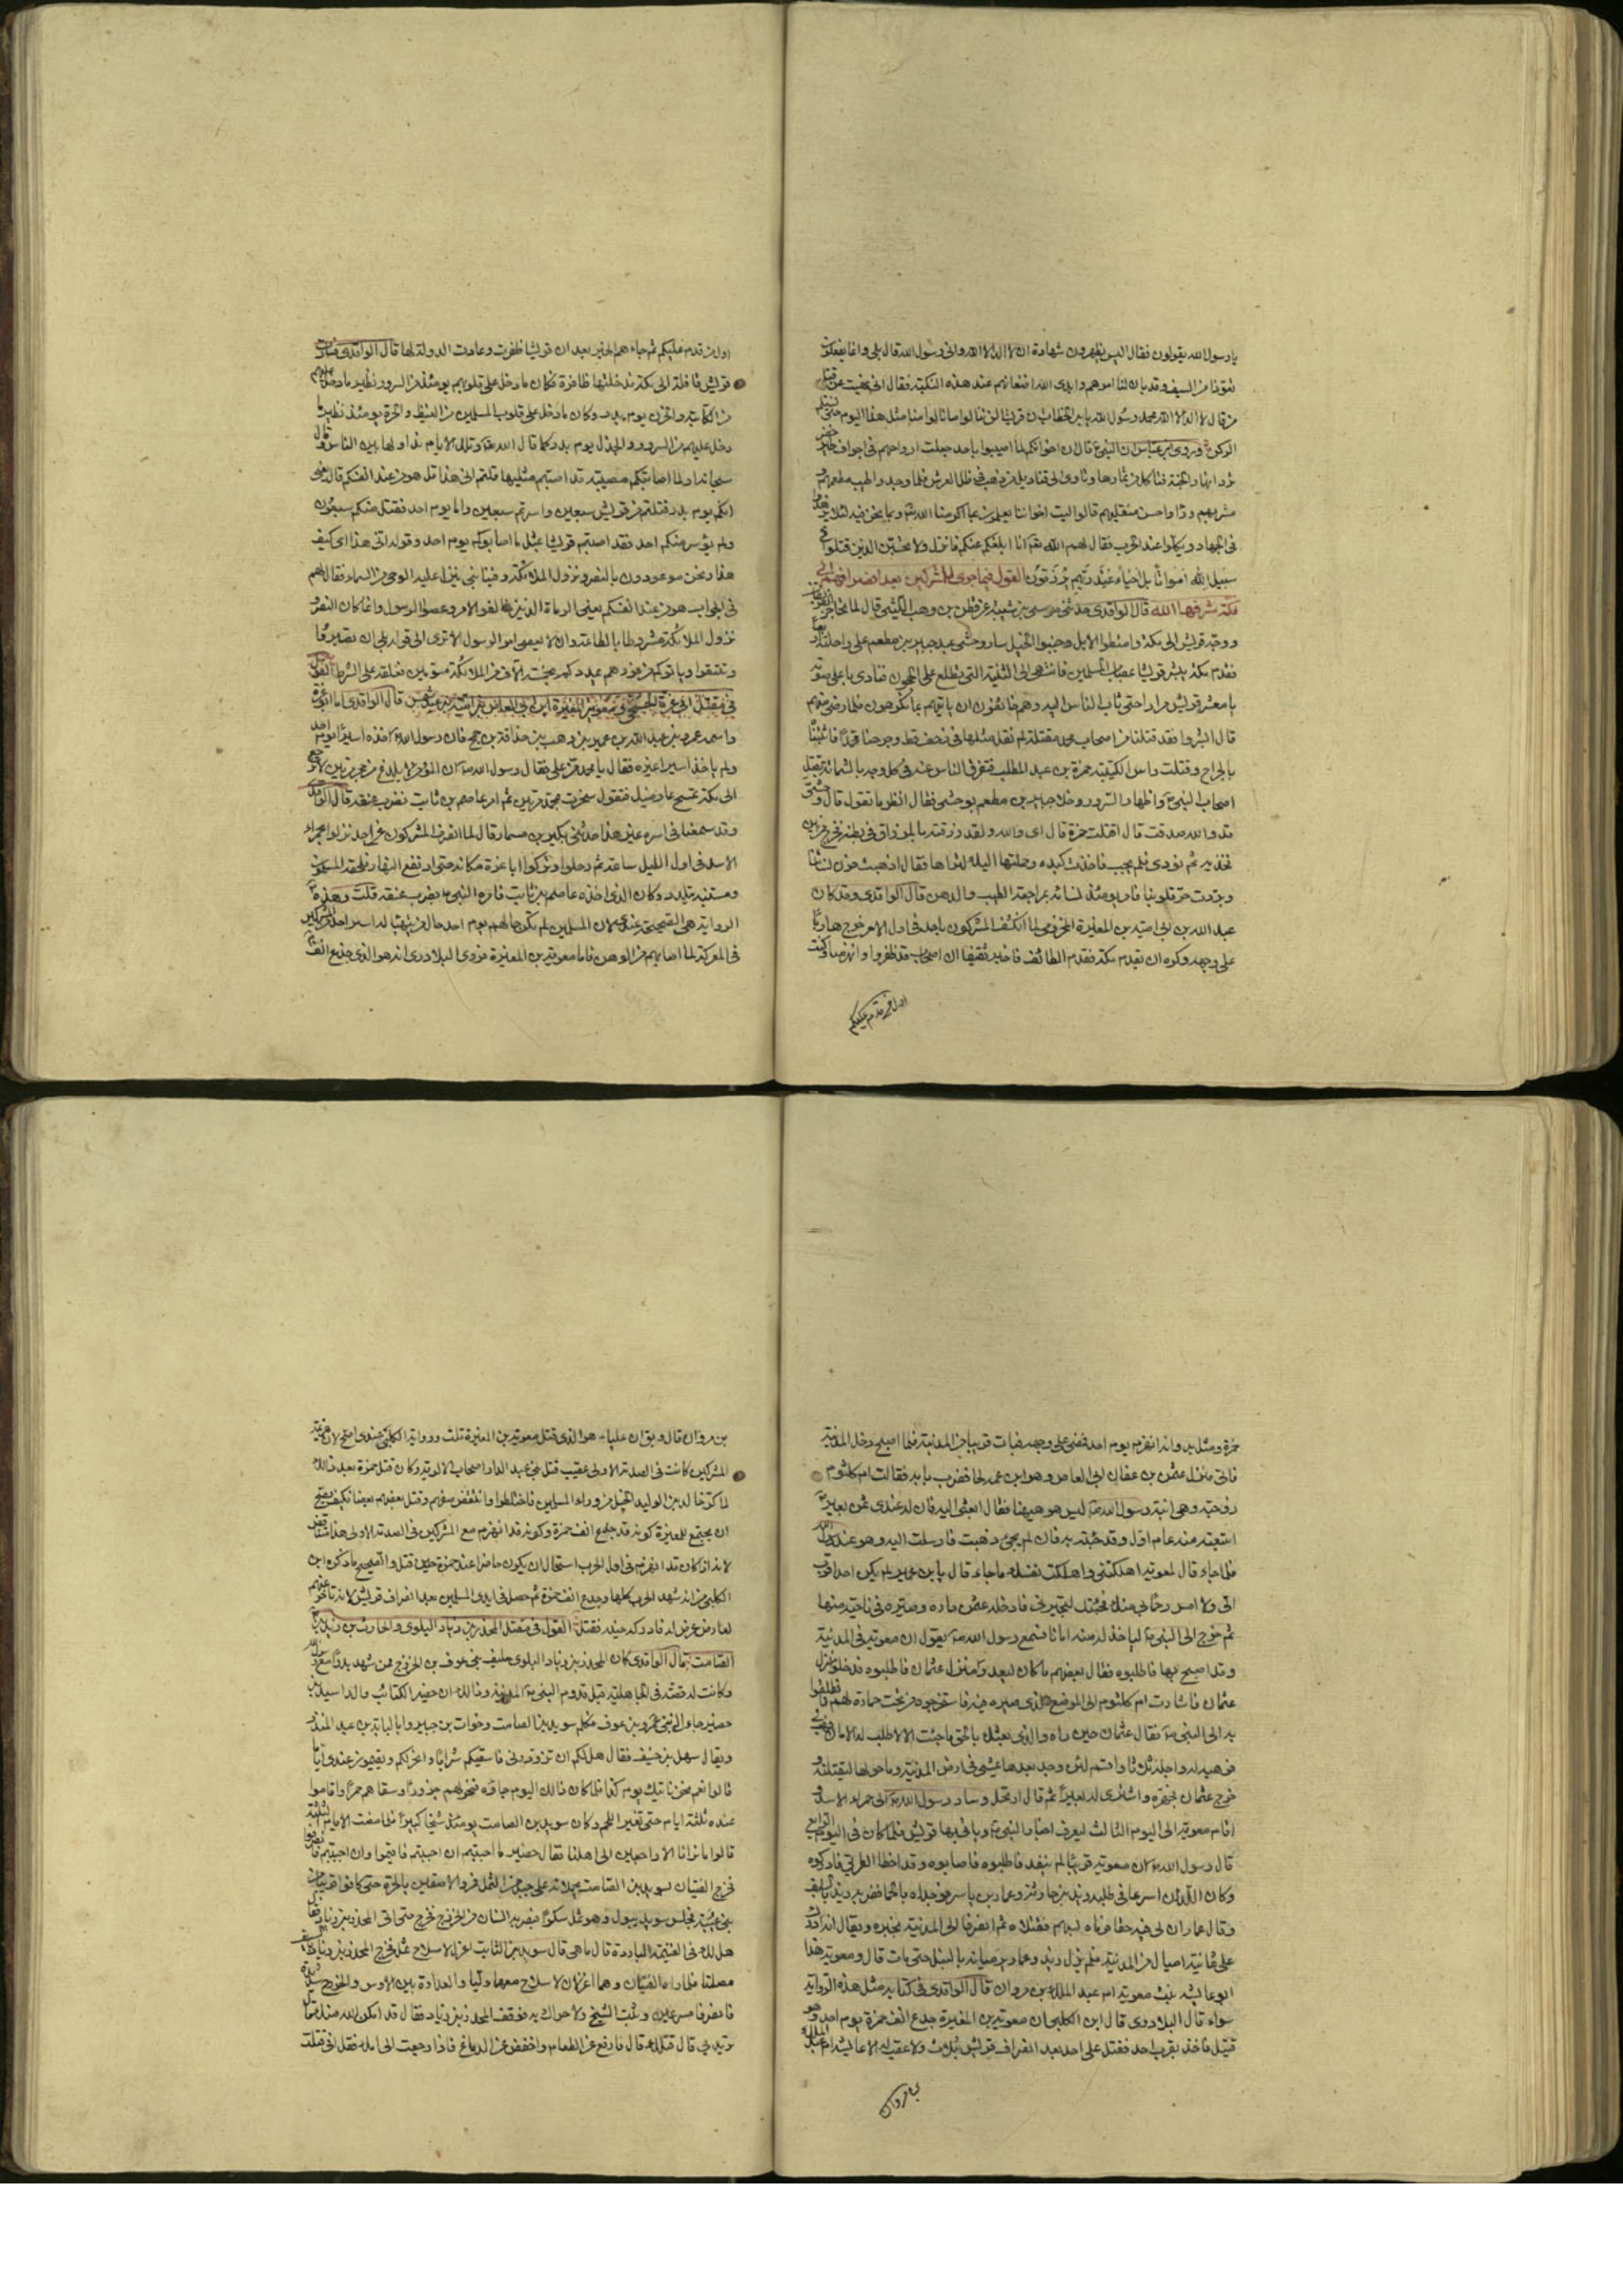 يا رسول الله يقولون فقال اليس يظهرون شهادة ان لا اله الا الله واني رسول الله قال بلى وانما يفعلون
تعوذا من السيف وقد بان لنا امرهم وابدى الله اضغانهم عند هذه النكبة فقال اني نهيت عن قتل
من قال لا اله الا الله محمد رسول الله يا بن الخطاب ان قريشا لن ينالوا ما نالوا منا مثل هذا اليوم حتى نستلم
الركن وروى ابن عباس ان النبي ع قال ان اخوانكم لما اصيبوا باحد جعلت ارواحهم في اجواف طير خضر
ترد انهار الجنة فتاكل من ثمارها وتاوى الى قناديل من ذهب في ظل العرش فلما وجدوا طيب مطعمهم و
مشربهم وراوا حسن منقلبهم قالوا ليت اخواننا يعلمون بما اكرمنا الله وبما نحن فيه لئلا يزهدوا
في الجهاد ويكلوا عند الحرب فقال لهم الله تعم انا ابلغكم عنكم فانزل ولا تحسبن الذين قتلوا في
سبيل الله امواتا بل احياء عند ربهم يرزقون القول فيما جرى للمشركين بعد انصرافهم الى
مكة شرفها الله قال الواقدي حدثني موسى بن شيبة عن قطن بن وهب الليثي قال لما تحاجز الفريقان
ووجه قريش الى مكة وامتطوا الابل وجنبوا الخيل سار وحشي عبد جبير بن مطعم على راحلته اربعا
فقدم مكة يبشر قريشا بمصاب المسلمين فانتهى الى الثنية التي تطلع على الحجون فنادى باعلى صوته
يا معشر قريش مرارا حتى ثاب الناس اليه وهم خائفون ان ياتيهم بما يكرهون فلما رضي منهم
قال ابشروا فقد قتلنا من اصحاب محمد مقتلة لم نقتل مثلها في زحف قط وجرحنا محمدا فاثبتناه
بالجراح وقتلت راس الكتيبة حمزة بن عبد المطلب فتفرق الناس عنه في كل وجه بالشماتة بقتل
اصحاب النبي واظهار السرور وخلا جبير بن مطعم بوحشي فقال انظر ما تقول قال وحشي
قد والله صدقت قال اقتلت حمزة قال اي والله ولقد زرقته بالمزراق في بطنه فخرج من بين
فخذيه ثم نودي فلم يجب فاخذت كبده وحملتها اليك لتراها فقال اذهبت حزن نسائنا
وبردت حر قلوبنا فامر يومئذ نسائه بمراجعة الطيب والدهن قال الواقدي وقد كان
عبد الله بن ابي امية بن المغيرة المخزومي لما انكشف المشركون باحد في اول الامر خرج هاربا
على وجهه وكره ان يقدم مكة فقدم الطائف فاخبر ثقيفا ان اصحاب محمد قد ظفروا وانهزمنا وكنت
اول من قدم عليكم
اول من قدم عليكم ثم جاءهم الخبر بعد ان قريشا ظفرت وعادت الدولة لها قال الواقدي فسارت
قريش قافلة الى مكة فدخلتها ظافرة فكان ما دخل على قلوبهم يومئذ من السرور نظير ما دخل عليهم
من الكآبة والحزن يوم بدر وكان ما دخل على قلوب المسلمين من الغيظ والحزن يومئذ نظير ما
دخل عليهم من السرور والجذل يوم بدر كما قال الله تعالى وتلك الايام نداولها بين الناس وقال
سبحانه اولما اصابتكم مصيبة قد اصبتم مثليها قلتم انى هذا قل هو من عند انفسكم قال يعني
انكم يوم بدر قتلتم من قريش سبعين واسرتم سبعين واما يوم احد فقتل منكم سبعون
ولم يؤسر منكم احد فقد اصبتم قريشا بمثلي ما اصابوكم يوم احد وقوله انى هذا اي كيف
هذا ونحن موعودون بالنصر ونزول الملائكة وفينا نبي ينزل عليه الوحي من السماء فقال لهم
في الجواب هو من عند انفسكم يعني الرماة الذين خالفوا الامر وعصوا الرسول وانما كان النصر و
نزول الملائكة مشروطا بالطاعة وان لا يعصى امر الرسول الا ترى الى قوله بلى ان تصبروا
وتتقوا وياتوكم من فورهم يمددكم بخمسة آلاف من الملائكة مسومين فعلقه على الشرط القول
في مقتل ابي عزة الجمحي ومعوية بن المغيرة ابن ابي العاص بن امية بن عبد شمس قال الواقدي اما ابو عزة
واسمه عمرو بن عبد الله بن عمير بن وهب بن حذافة بن جمح فان رسول الله اخذه اسيرا يوم احد
ولم ياخذ اسيرا غيره فقال يا محمد من علي فقال رسول الله ص ان المؤمن لا يلدغ من جحر مرتين لا ترجع
الى مكة تمسح عارضيك فتقول سخرت بمحمد مرتين ثم امر عاصم بن ثابت فضرب عنقه قال الواقدي
وقد سمعنا في اسره غير هذا حدثني بكير بن مسمار قال لما انصرف المشركون عن احد نزلوا بحمراء
الاسد في اول الليل ساعة ثم رحلوا وتركوا ابا عزة مكانه حتى ارتفع النهار فلحقه المسلمون
وهو مستنبه يتلدد وكان الذي اخذه عاصم بن ثابت فامره النبي ص فضرب عنقه قلت وهذه
الرواية هي الصحيحة عندي لان المسلمين لم تكن حالهم يوم احد حال من يتهيأ له اسر احد من المشركين
في المعركة لما اصابهم من الوهن فاما معوية بن المغيرة فروى البلاذري انه هو الذي جدع انف
حمزة ومثل به وانه انهزم يوم احد فمضى على وجهه فبات قريبا من المدينة فلما اصبح دخل المدينة
فاتى منزل عثمن بن عفان ابي العاص وهو ابن عمه لحا فضرب بابه فقالت ام كلثوم
زوجته وهي ابنة رسول الله ص ليس هو ههنا فقال ابعثي اليه فان له عندي ثمن بعير
ابتعته منه عام اول وقد جئته به فان لم يجئ ذهبت فارسلت اليه وهو عند رسول الله
فلما جاء قال لمعوية اهلكتني واهلكت نفسك ما جاء بك قال يا بن عم لم يكن احد اقرب
الي ولا امس رحما بي منك فجئتك لتجيرني فادخله عثمن داره وصيره في ناحية منها
ثم خرج الى النبي ص لياخذ له منه امانا فسمع رسول الله ص يقول ان معوية في المدينة
وقد اصبح بها فاطلبوه فقال بعضهم ما كان ليعدو منزل عثمان فاطلبوه به فدخلوا منزل
عثمان فاشارت ام كلثوم الى الموضع الذي صيره فيه فاستخرجوه من تحت حمارة لهم فانطلقوا
به الى النبي ص فقال عثمان حين رآه والذي بعثك بالحق ما جئت الا لاطلب له الامان فهبه لي
فوهبه له واجله ثلثا واقسم لئن وجد بعدها يمشي في ارض المدينة وما حولها ليقتلنه و
خرج عثمان فجهزه واشترى له بعيرا ثم قال ارتحل وسار رسول الله ص الى حمراء الاسد و
اقام معوية الى اليوم الثالث ليعرف اخبار النبي ص وياتي بها قريش فلما كان في اليوم الرابع
قال رسول الله ص ان معوية اصبح قريبا لم ينفذ فاطلبوه فاصابوه وقد اخطا الطريق فادركوه
وكان اللذان اسرعا في طلبه زيد بن حارثة وعمار بن ياسر فوجداه بالحماء فضربه زيد بالسيف
وقال عمار ان لي فيه حقا فرماه بسهم فقتلاه ثم انصرفا الى المدينة بخبره ويقال انه ادرك
على ثمانية اميال من المدينة فلم يزل زيد وعمار يرميانه بالنبل حتى مات قال ومعوية هذا
ابو عائشة بنت معوية ام عبد الملك بن مروان قال الواقدي في كتابه مثل هذه الرواية
سواء قال البلاذري قال ابن الكلبي ان معوية بن المغيرة جدع انف حمزة يوم احد وهو
قتيل فاخذ بقرب احد فقتل على احد بعد انصراف قريش بثلث ولا عقب له الا عائشة ام عبد الملك
بن مروان
بن مروان قال ويق ان عليا ع هو الذي قتل معوية بن المغيرة قلت ورواية الكلبي عندي اصح لان هزيمة
المشركين كانت في الصدمة الاولى عقيب قتل بني عبد الدار اصحاب الالوية وكان قتل حمزة بعد ذلك
لما كر خالد بن الوليد الخيل من وراء المسلمين فاختلطوا وانتقض صفهم وقتل بعضهم بعضا فكيف يصح
ان يجتمع لمعوية كونه قد جدع انف حمزة وكونه قد انهزم مع المشركين في الصدمة الاولى هذا متناقض
لانه اذا كان قد انهزم في اول الحرب استحال ان يكون حاضرا عند حمزة حين قتل والصحيح ما ذكره ابن
الكلبي من انه شهد الحرب كلها وجدع انف حمزة ثم حصل في ايدي المسلمين بعد انصراف قريش لانه تاخر عنهم
لعارض عرض له فادركه حينه فقتل القول في مقتل المجذر بن زياد البلوي والحارث بن سويد بن
الصامت قال الواقدي كان المجذر بن زياد البلوي حليف بني عوف بن الخزرج ممن شهد بدرا مع رسول الله
وكانت له قصة في الجاهلية قبل قدوم النبي ص المدينة وذلك ان حضير الكتائب والد اسيد بن
حضير جاء الى بني عمرو بن عوف فكلم سويد بن الصامت وخوات بن جبير وابا لبابة بن عبد المنذر
ويقال سهل بن حنيف فقال هل لكم ان تزوروني فاسقيكم شرابا وانحر لكم وتقيمون عندي اياما
قالوا نعم نحن ناتيك يوم كذا فلما كان ذلك اليوم جاؤه فنحر لهم جزورا وسقاهم خمرا واقاموا
عنده ثلثة ايام حتى تغير اللحم وكان سويد بن الصامت يومئذ شيخا كبيرا فلما مضت الايام الثلثة
قالوا ما نرانا الا راجعين الى اهلنا فقال حضير ما احببتم ان احببتم فاقيموا وان احببتم فانصرفوا
فخرج الفتيان بسويد بن الصامت يحملانه على جمل من الثمل فمروا لاصقين بالحرة حتى كانوا قريبا من
بني عيينة فجلس سويد يبول وهو ثمل سكرا فبصر به انسان من الخزرج فخرج حتى اتى المجذر بن زياد فقال
هل لك في الغنيمة الباردة قال ما هي قال سويد بن الصامت اعزل لا سلاح معه ثمل فخرج المجذر بن زياد بالسيف
مصلتا فلما راه الفتيان وهما اعزلان لا سلاح معهما وليا والعداوة بين الاوس والخزرج شديدة
فانصرفا مسرعين وثبت الشيخ ولا حراك به فوقف المجذر بن زياد فقال قد امكن الله منك قال ما
تريد بي قال قتلك قال فارفع عن الطعام واخفض عن الدماغ فاذا رجعت الى امك فقل اني قتلت